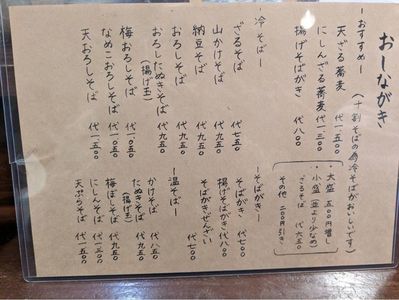 おしながき
(十割そばの為冷そばがおいしいです)
ーおすすめー
天ざる蕎麦 代一五〇〇
にしんざる蕎麦 代一三〇〇
揚げそばがき 代八〇〇
・大盛 五〇〇円増し
・小盛(並より少なめ)
ざるそば 代六五〇
その他 二〇〇円引き
ー冷そばー
ざるそば 代七五〇
山かけそば 代九五〇
納豆そば 代九五〇
おろしそば 代九五〇
おろしたぬきそば 代九五〇
(揚げ玉)
梅おろしそば 代一〇五〇
なめこおろしそば 代一〇五〇
天おろしそば 代一五〇〇
ーそばがきー
そばがき 代七〇〇
揚げそばがき 代八〇〇
そばがきぜんざい 代七〇〇
ー温そばー
かけそば 代八五〇
たぬきそば 代九五〇
(揚げ玉)
梅ぼしそば 代九五〇
にしんそば 代一三〇〇
天ぷらそば 代一五〇〇